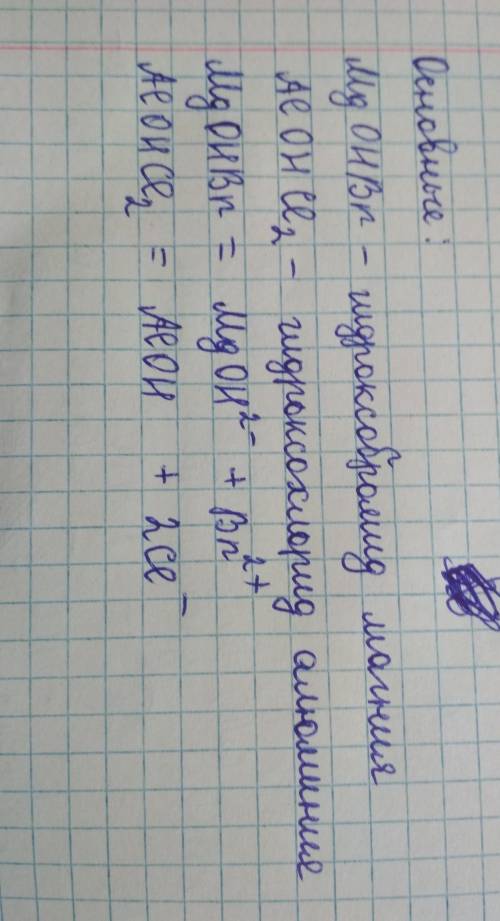 Основные:
MgOHBr - гидроксобромид магния
AlOHCl₂ - гидроксохлорид алюминия
MgOHBr = MgOH²⁻ + Br²⁺
AlOHCl₂ = AlOH + 2Cl⁻